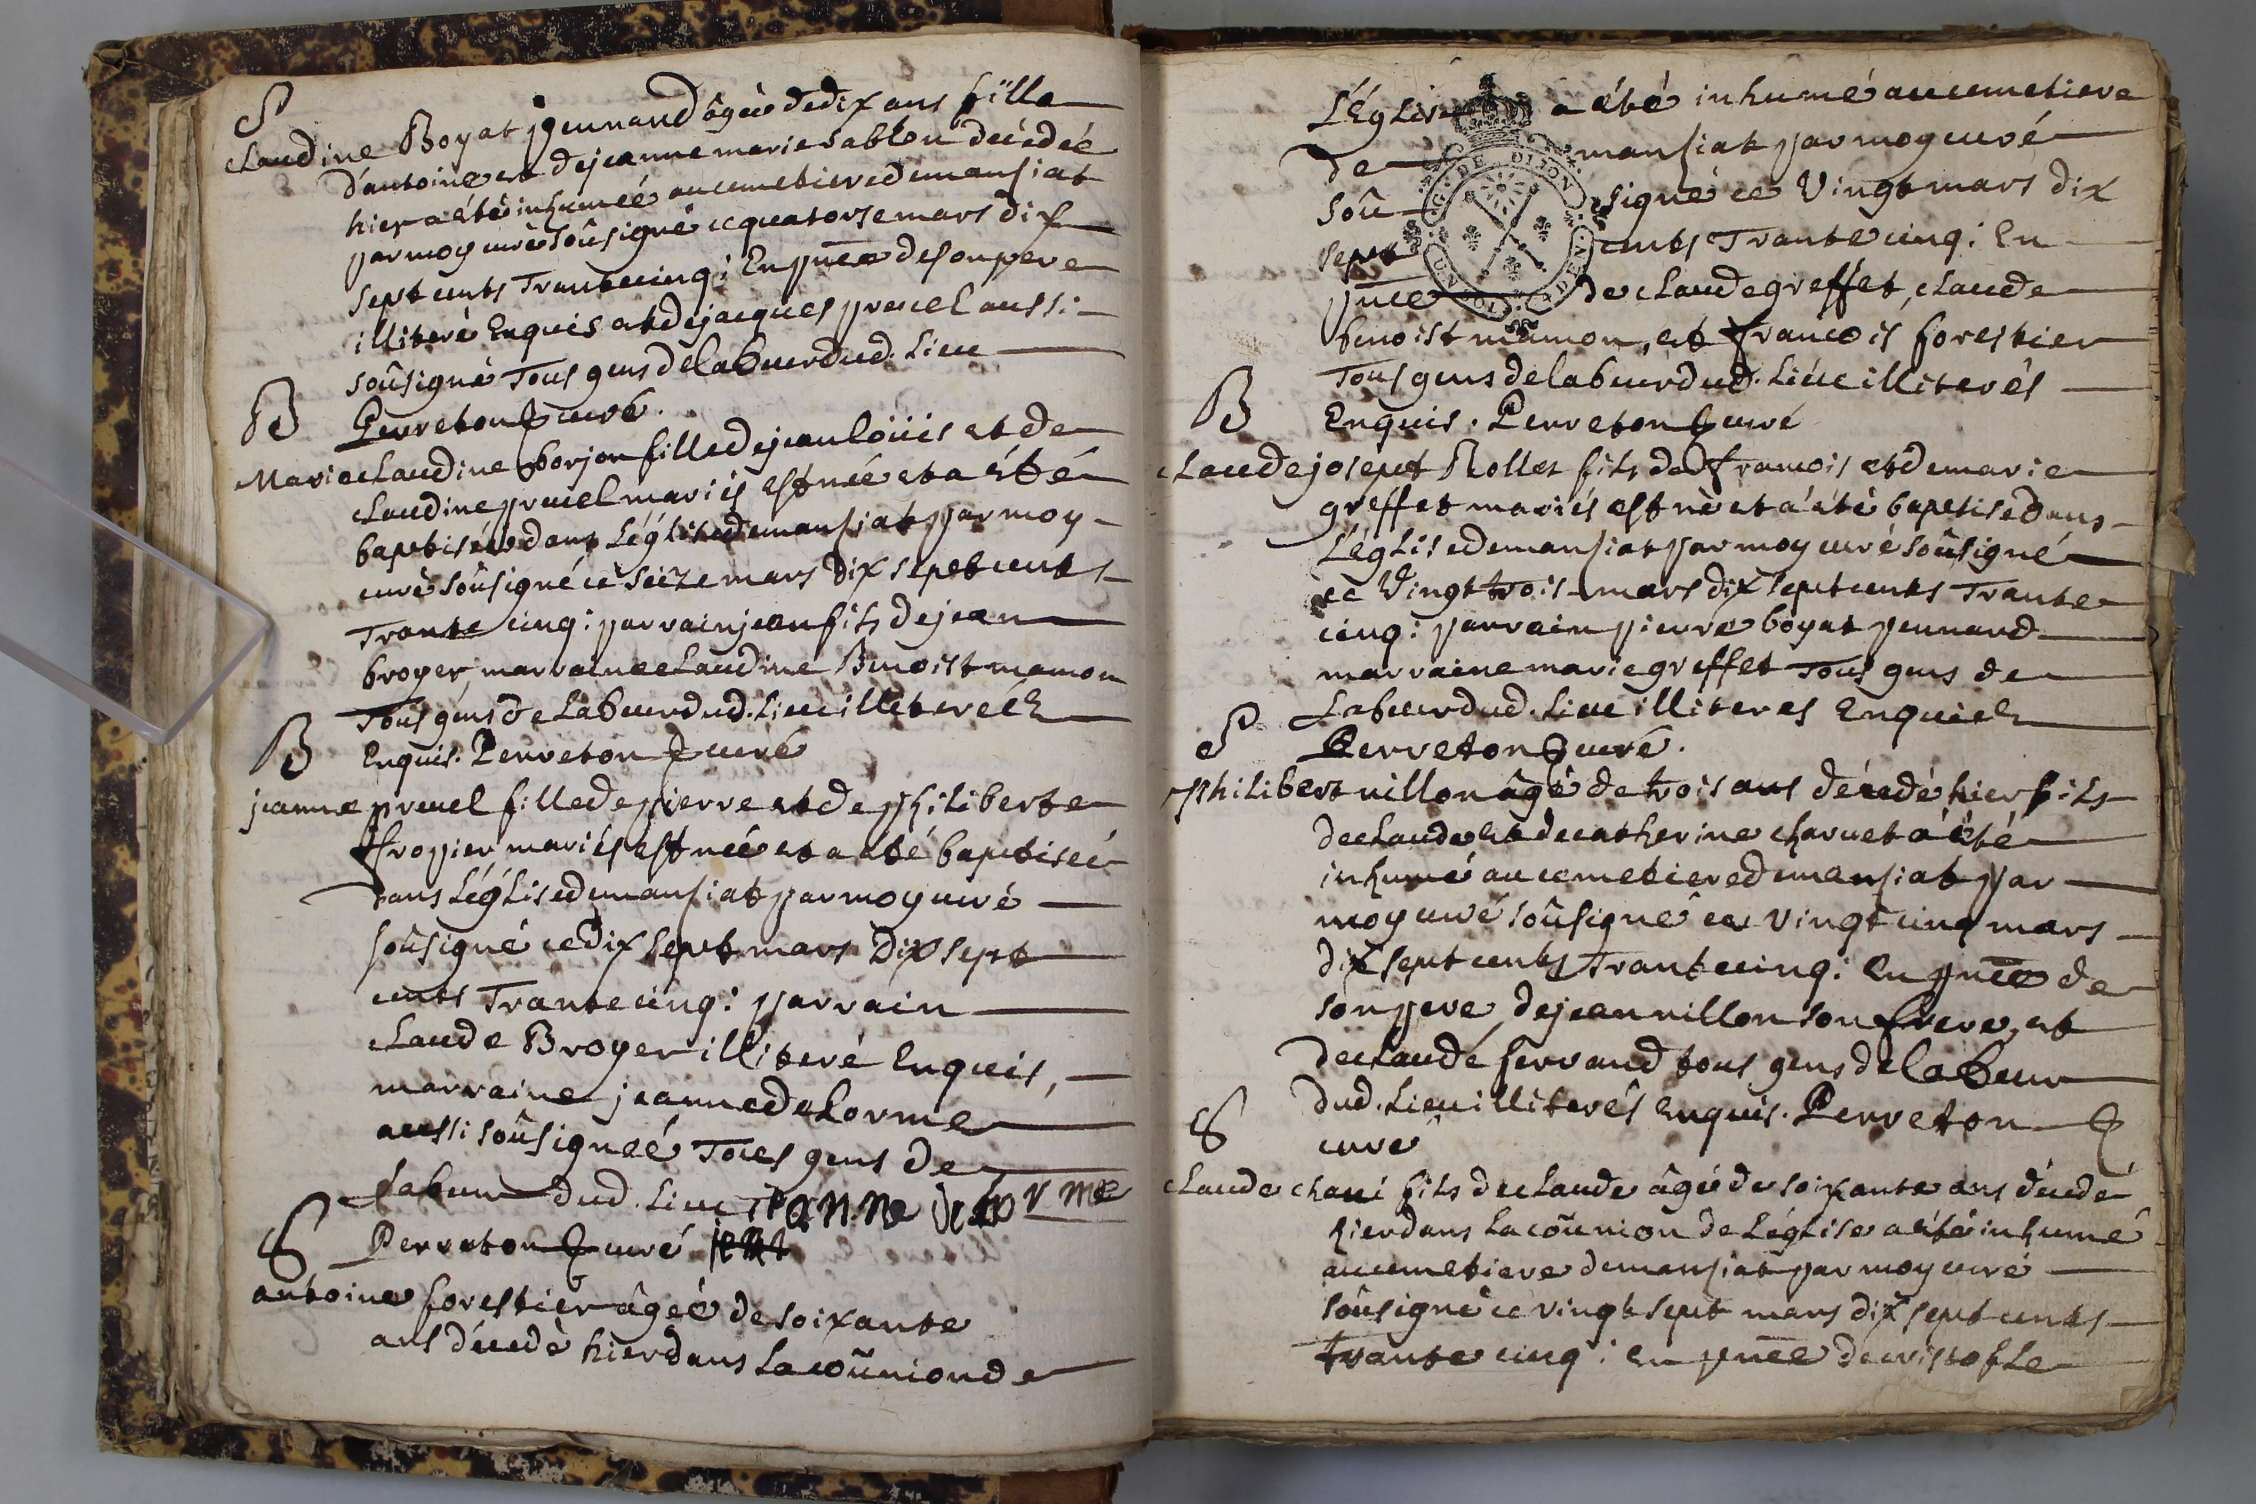 S
Claudine Boyat pennand âgeè de dix ans fille
d'antoine et de jeanne marie sablon décedeé
hier a été inhumeé au cemetiere de mansiat
par moy curè soûsigné ce quatorse mars dix
sept cents Trante cinq: En pnce de son pere
illiteré Enquis et de jacques pruel aussi
soûsigné Tous gens de labeur dud. Lieu
B
Perreton curé.
Marie claudine borjon fille de jean loüis et de
claudine pruel mariés est neé et a été
baptiseé dans L'église de mansiat par moy
curè soûsigné ce seize mars dix sept cents
Trante cinq: parrain jean fils de jean
broyer, marraine claudine Benoist mamon
Tous gens de Labeur dud. Lieu illiterés
B
Enquis. Perreton curé
jeanne pruel fille de pierre et de philiberte
fropier mariés est neé et a eté baptiseé
dans L'église de mansiat par moy curé
soûsigné ce dix sept mars Dix sept
cents Trante cinq: parrain
claude Broyer illiteré Enquis,
marraine jeanne delorme
aussi soûsigneé Tous gens de
Labeur dud. Lieu
S
Perreton curé
antoine forestier âgeé de soixante
ans décedè hier dans La coûnion de
L'Église a été inhumé au cemetiere
de mansiat par moy curé
soû signé ce Vingt mars dix
sept cents Trante cinq: En
pnce de claude greffet, claude
benoist mamon, et françois forestier
Tous gens de labeur dud. Lieu illiterés
B
Enquis. Perreton curé
claude josept Rollet fils de françois et de marie
greffet mariés est nè et a été baptisé dans
L'église de mansiat par moy curé soûsigné
ce Vingt trois mars dix sept cents Trante
cinq: parrain pierre boyat pennand
marraine marie greffet Tous gens de
S
Labeur dud. Lieu illiteres Enquis
Perreton curé.
philibert nillon âgé de trois ans décedé hier fils
de claude et de catherine charnet a été
inhumé au cemetiere de mansiat par
moy curé soûsigné ce Vingt cinq mars
dix sept cents Trante cinq: En pnce de
son pere, de jean nillon son frere, et
de claude ferrand tous gens de labeur
S
dud. Lieu illiterés Enquis. Perreton
curé
claude chani fils de claude âgé de soixante ans décedé
hier dans La coûnion de L'église a été inhumé
au cemetiere de mansiat par moy curé
soûsigné ce vingt sept mars dix sept cents
trante cinq: en pnce de cristofle
G. DE DIJON